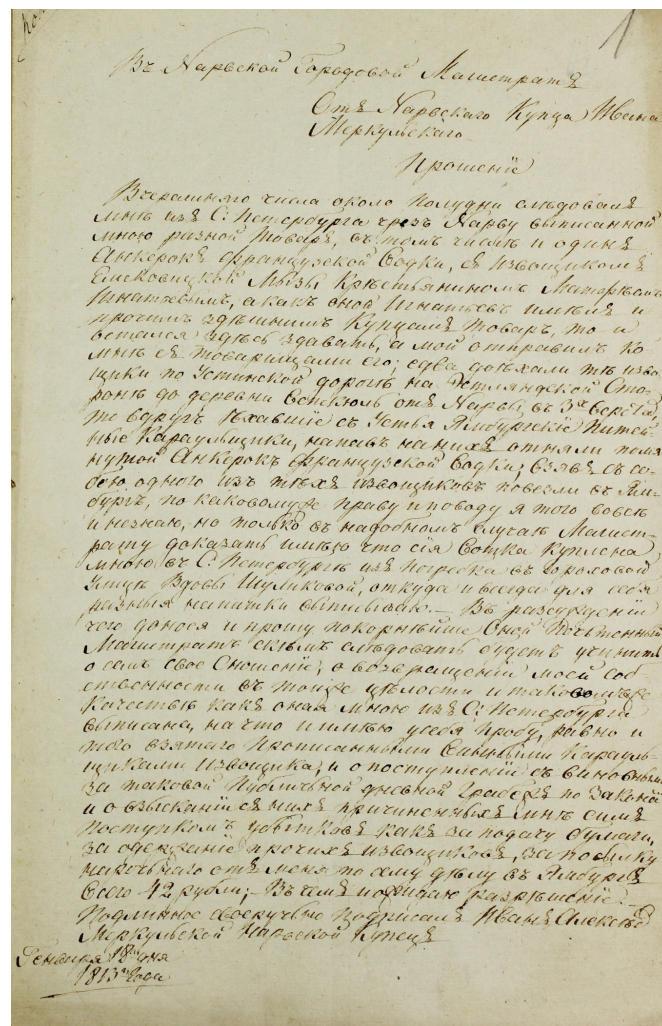 1
Въ Нарвской Городовой Магистратъ
Отъ Нарвскаго Купца Ивана
Меркульскаго
Прошеніе
Вчерашняго числа около полудни слѣдовалъ
мнѣ изъ С: Петербурга чрезъ Нарву выписанной
мною разной товаръ, въ томъ числѣ и одинъ
Анкерокъ французской Водки, съ Извощикомъ
Мызы Крестьяниномъ
Игнатьевымъ, а какъ оной Игнатьевъ имѣлъ и
прочимъ здѣшнимъ Купцамъ товаръ, то и
остался здѣсь здавать, а мой отправилъ ко
мнѣ съ товарищами его; едва доѣхали тѣ изво-
щики по Устинской дорогѣ на Эстляндской Сто-
ронѣ до деревни отъ Нарвы, въ 3хъ верстахъ,
то вдругъ ѣхавшіе съ Устья Ямбургскіе Питей-
ные Караульщики, напавъ на нихъ отняли помя-
нутой Анкерокъ французской Водки; взявъ съ со-
бою одного изъ тѣхъ извощиковъ повезли въ Ям-
бургъ, по каковому же праву и поводу я того вовсе
и незнаю, но только въ надобномъ случаѣ Магист-
рату доказать имѣю что сія Вотка куплена
мною въ С: Петербургѣ изъ погребка въ Гороховой
Улицѣ Вдовы Шуликовой, откуда и всегда для себя
разныя напитки выписываю. — Въ разсужденіи
чего донося и прошу покорнѣйше Оной Почтенный
Магистратъ съ кѣмъ слѣдовать будетъ учинить
о семъ свое Сношеніе, о возвращеніи моей соб-
ственности въ той же цѣлости и таковомъ же
качествѣ какъ оная мною изъ С: Петербурга
выписана, на что и имѣю у себя пробу, равно и
того взятаго прописанными Караул-
щиками Извощика, и о поступленіи съ виновными
за таковой публичной дневной Грабежъ по Законамъ
и о взысканіи съ нихъ причиненныхъ мнѣ симъ
поступкомъ убытковъ какъ за подачу бумаги,
за одержаніе прочихъ извощиковъ, за посылку
нарочнаго отъ меня по сему дѣлу въ Ямбургъ
Всего 42 рубли; — Въ чемъ и ожидаю разрѣшеніе. —
Подлинное своеручно подписалъ Иванъ Алексѣевъ
Меркульской Нарвской Купецъ
Генваря 18го дня
1813го года